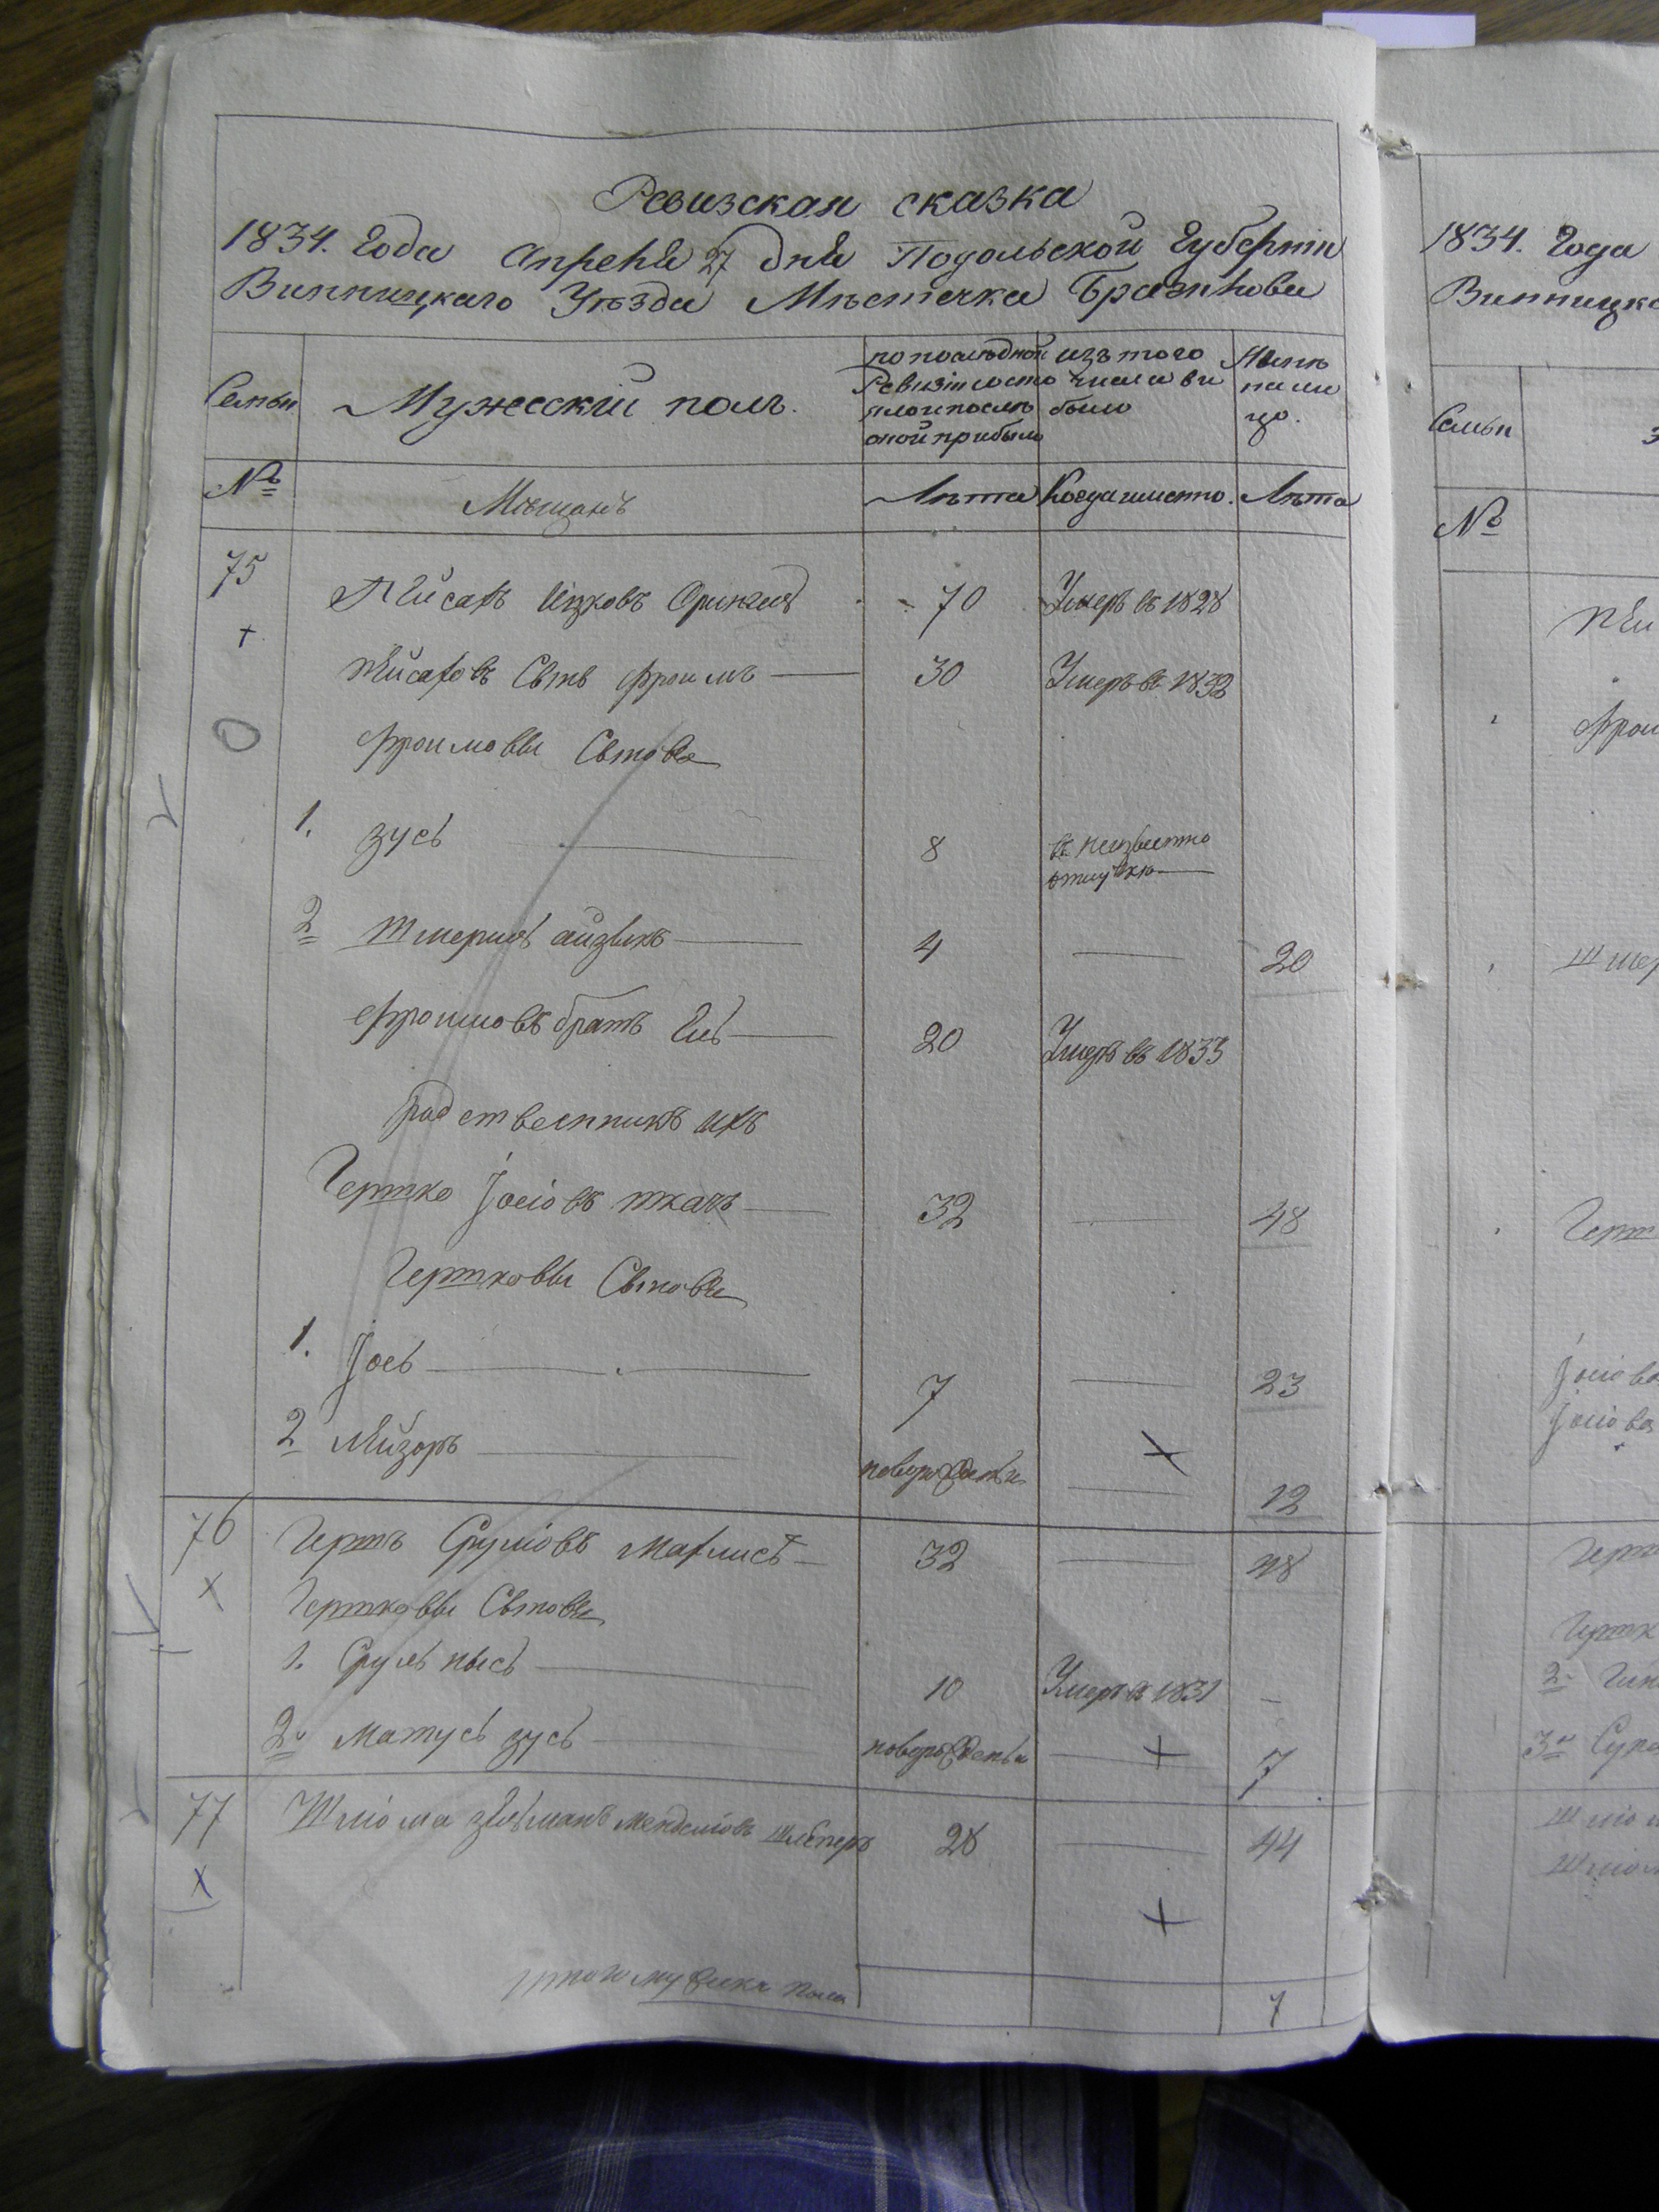 Ревизская сказка
1834. Года Апреля 27 дня Подольской Губернiи
Винницкаго Уѣзда Мѣстечка Браилова
Семьи
Мужескiй полъ.
по последной Ревизiи состояло и после оной прибыло
изъ того числа выбыло
Ныне на лицо.
№
Мѣщанъ
Лѣта
Когда именно.
Лѣта
75
Лейзоръ Ицковъ 70 Умеръ въ 1828
Сынъ Фроимъ 30 Умеръ въ 1832
Фроимовы Сыновья
1. Зусь 8 въ неизвестно отлучке
2 Шмериль Айзыкъ 4 20
Фроимовъ братъ 20 Умеръ въ 1833
родственникъ ихъ
Гершко Iосiовъ ткачъ 32 48
Гершковы Сыновья
1. Iось 7 23
2 Лейзоръ новорожденъ 12
76 Гершъ Сруліовъ 32 48
Гершковы Сыновья
1. Сруль 10 Умеръ въ 1831
2й Матусъ Зусь новорожденъ 7
77 Шліома Зельманъ Менделіовъ 28 44
Итого мужска пола 7
1834. Года
Винницка
Семьи
№
Фрои
Шмер
Герш
Iосіова
Iосіова
Герш
Гершк
2й
3я Сура
Шліом
Шліом